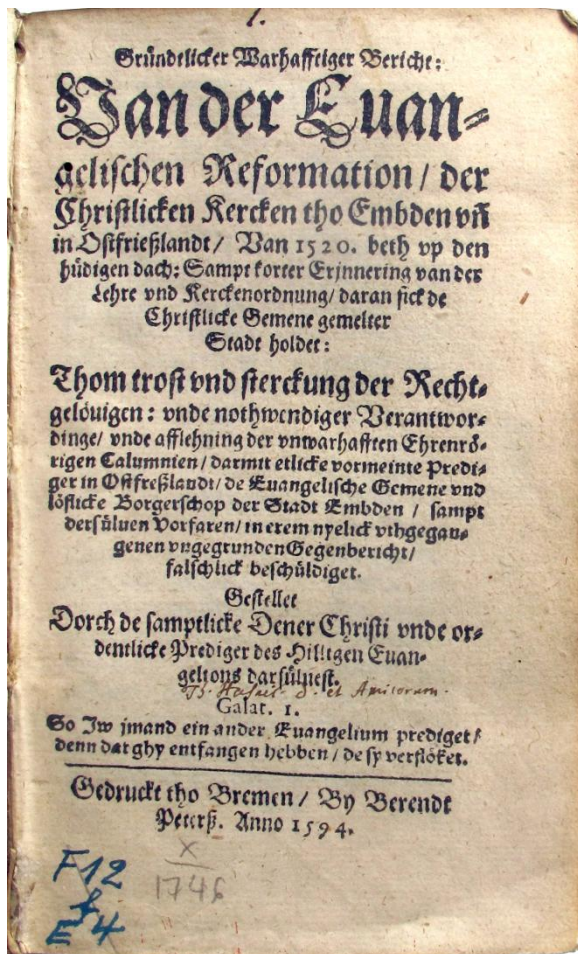 1.
Gründtlicker Warhafftiger Bericht:
Van der Euan-
gelischen Reformation / der
Christlicken Kercken tho Embden vñ
in Ostfrießlandt / Van 1520. beth vp den
hüdigen dach: Sampt korter Erjnnering van der
Lehre vnd Kerckenordnung / daran sick de
Christlicke Gemene gemelter
Stadt holdet:
Thom trost vnd sterckung der Recht-
gelöuigen: vnde nothwendiger Verantwor-
dinge / vnde afflehning der vnwarhafften Ehrenrö-
rigen Calumnien / darmit etlicke vormeinte Predi-
ger in Ostfreßlandt / de Euangelische Gemene vnd
löfflicke Borgerschop der Stadt Embden / sampt
dersüluen Vorfaren / in erem nyelick vthgegan-
genen vngegrunden Gegenbericht /
falschlick beschüldiget.
Gestellet
Dorch de samptlicke Dener Christi vnde or-
dentlicke Prediger des Hilligen Euan-
gelions darsüluest.
et Amicorum.
Galat. 1.
So Jw jmand ein ander Euangelium prediget /
denn dat ghy entfangen hebben / de sy verflöket.
Gedruckt tho Bremen / By Berendt
Peterß. Anno 1594.
X
1746
F 12
E 4